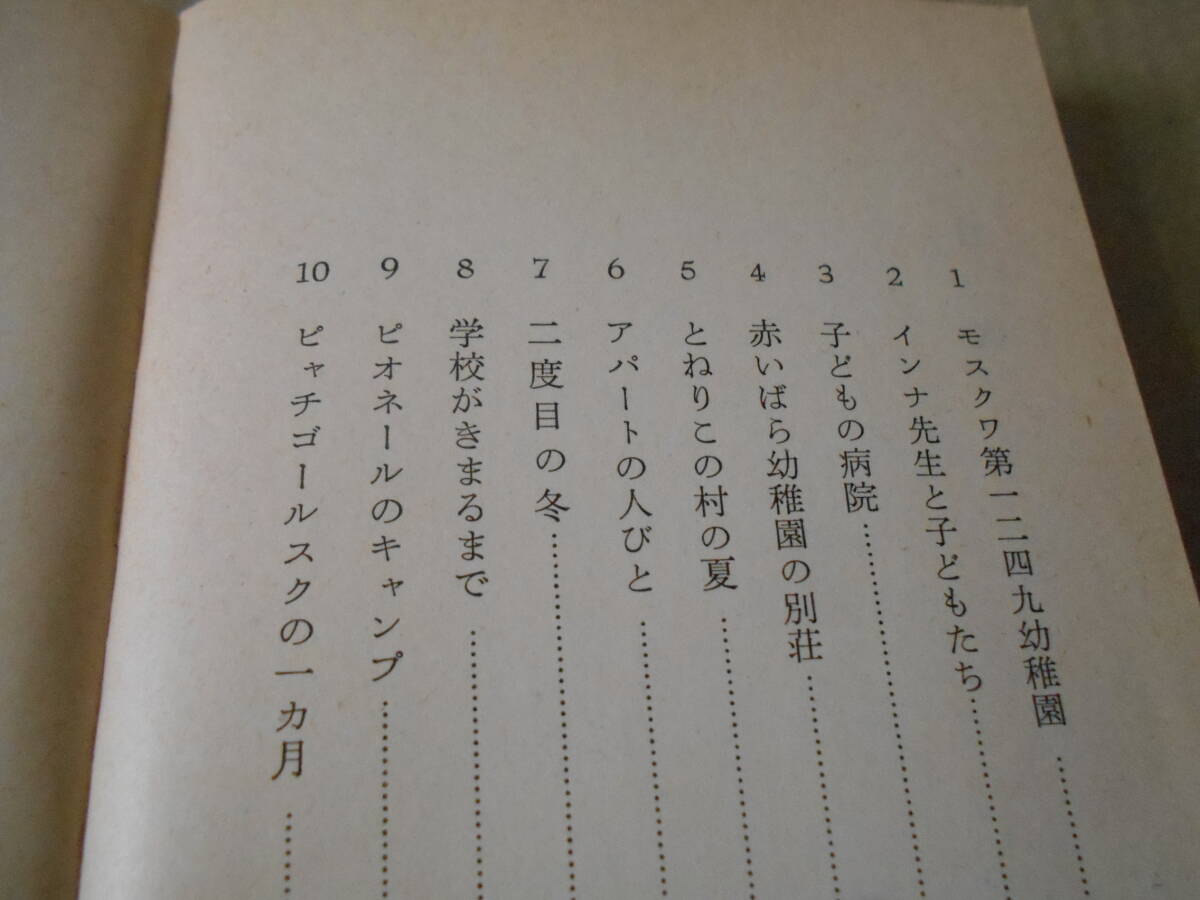 1 モスクワ第一二四九幼稚園…………
2 インナ先生と子どもたち…………
3 子どもの病院…………
4 赤いばら幼稚園の別荘…………
5 とねりこの村の夏…………
6 アパートの人びと…………
7 二度目の冬…………
8 学校がきまるまで…………
9 ピオネールのキャンプ…………
10 ピャチゴールスクの一カ月…………